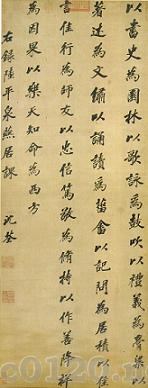 以書史為園林以歌詠為鼓吹以禮義為膏粱以
著述為文繡以誦讀為菑畬以記問為居積以前
言往行為師友以忠信篤敬為脩持以作善降祥
為因果以樂天知命為西方
右錄陸平泉燕居課 沈荃